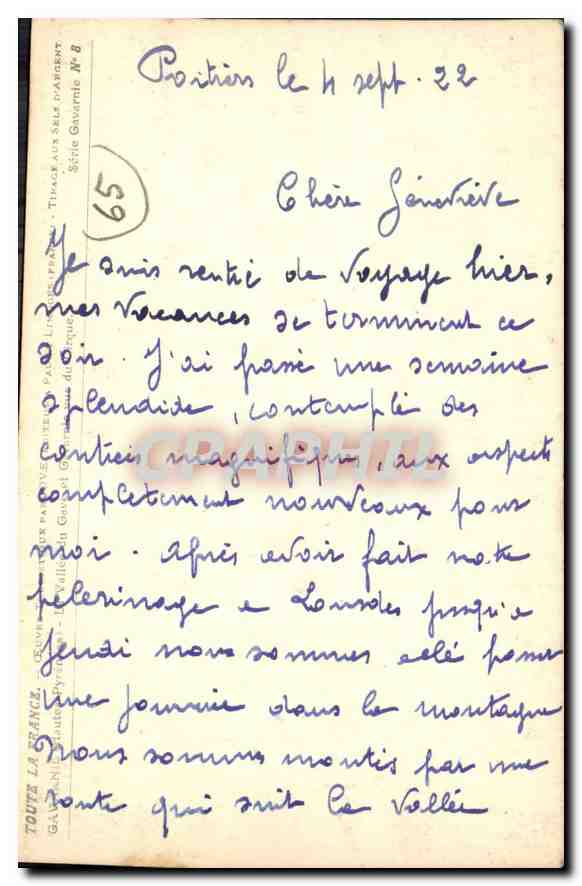 Poitiers le 4 sept. 22
Chère Géneviève
Je suis rentré de voyage hier,
mes vacances se terminent ce
soir. J'ai passé une semaine
splendide, contemplé des
contrées magnifiques, aux aspects
completement nouveaux pour
moi. Après avoir fait notre
pelerinage a Lourdes jusqu'a
Jeudi nous sommes allé passer
une journée dans la montagne
Nous sommes montés par une
route qui suit la vallée
65
CPAPHIL
TOUTE LA FRANCE. - ŒUVRE
PAR
TIRAGE AUX SELS D'ARGENT
GAVARNIE (Hautes-Pyrénées) - La Vallée du Gave et Gavarnie vue du Cirque
Série Gavarnie N° 8